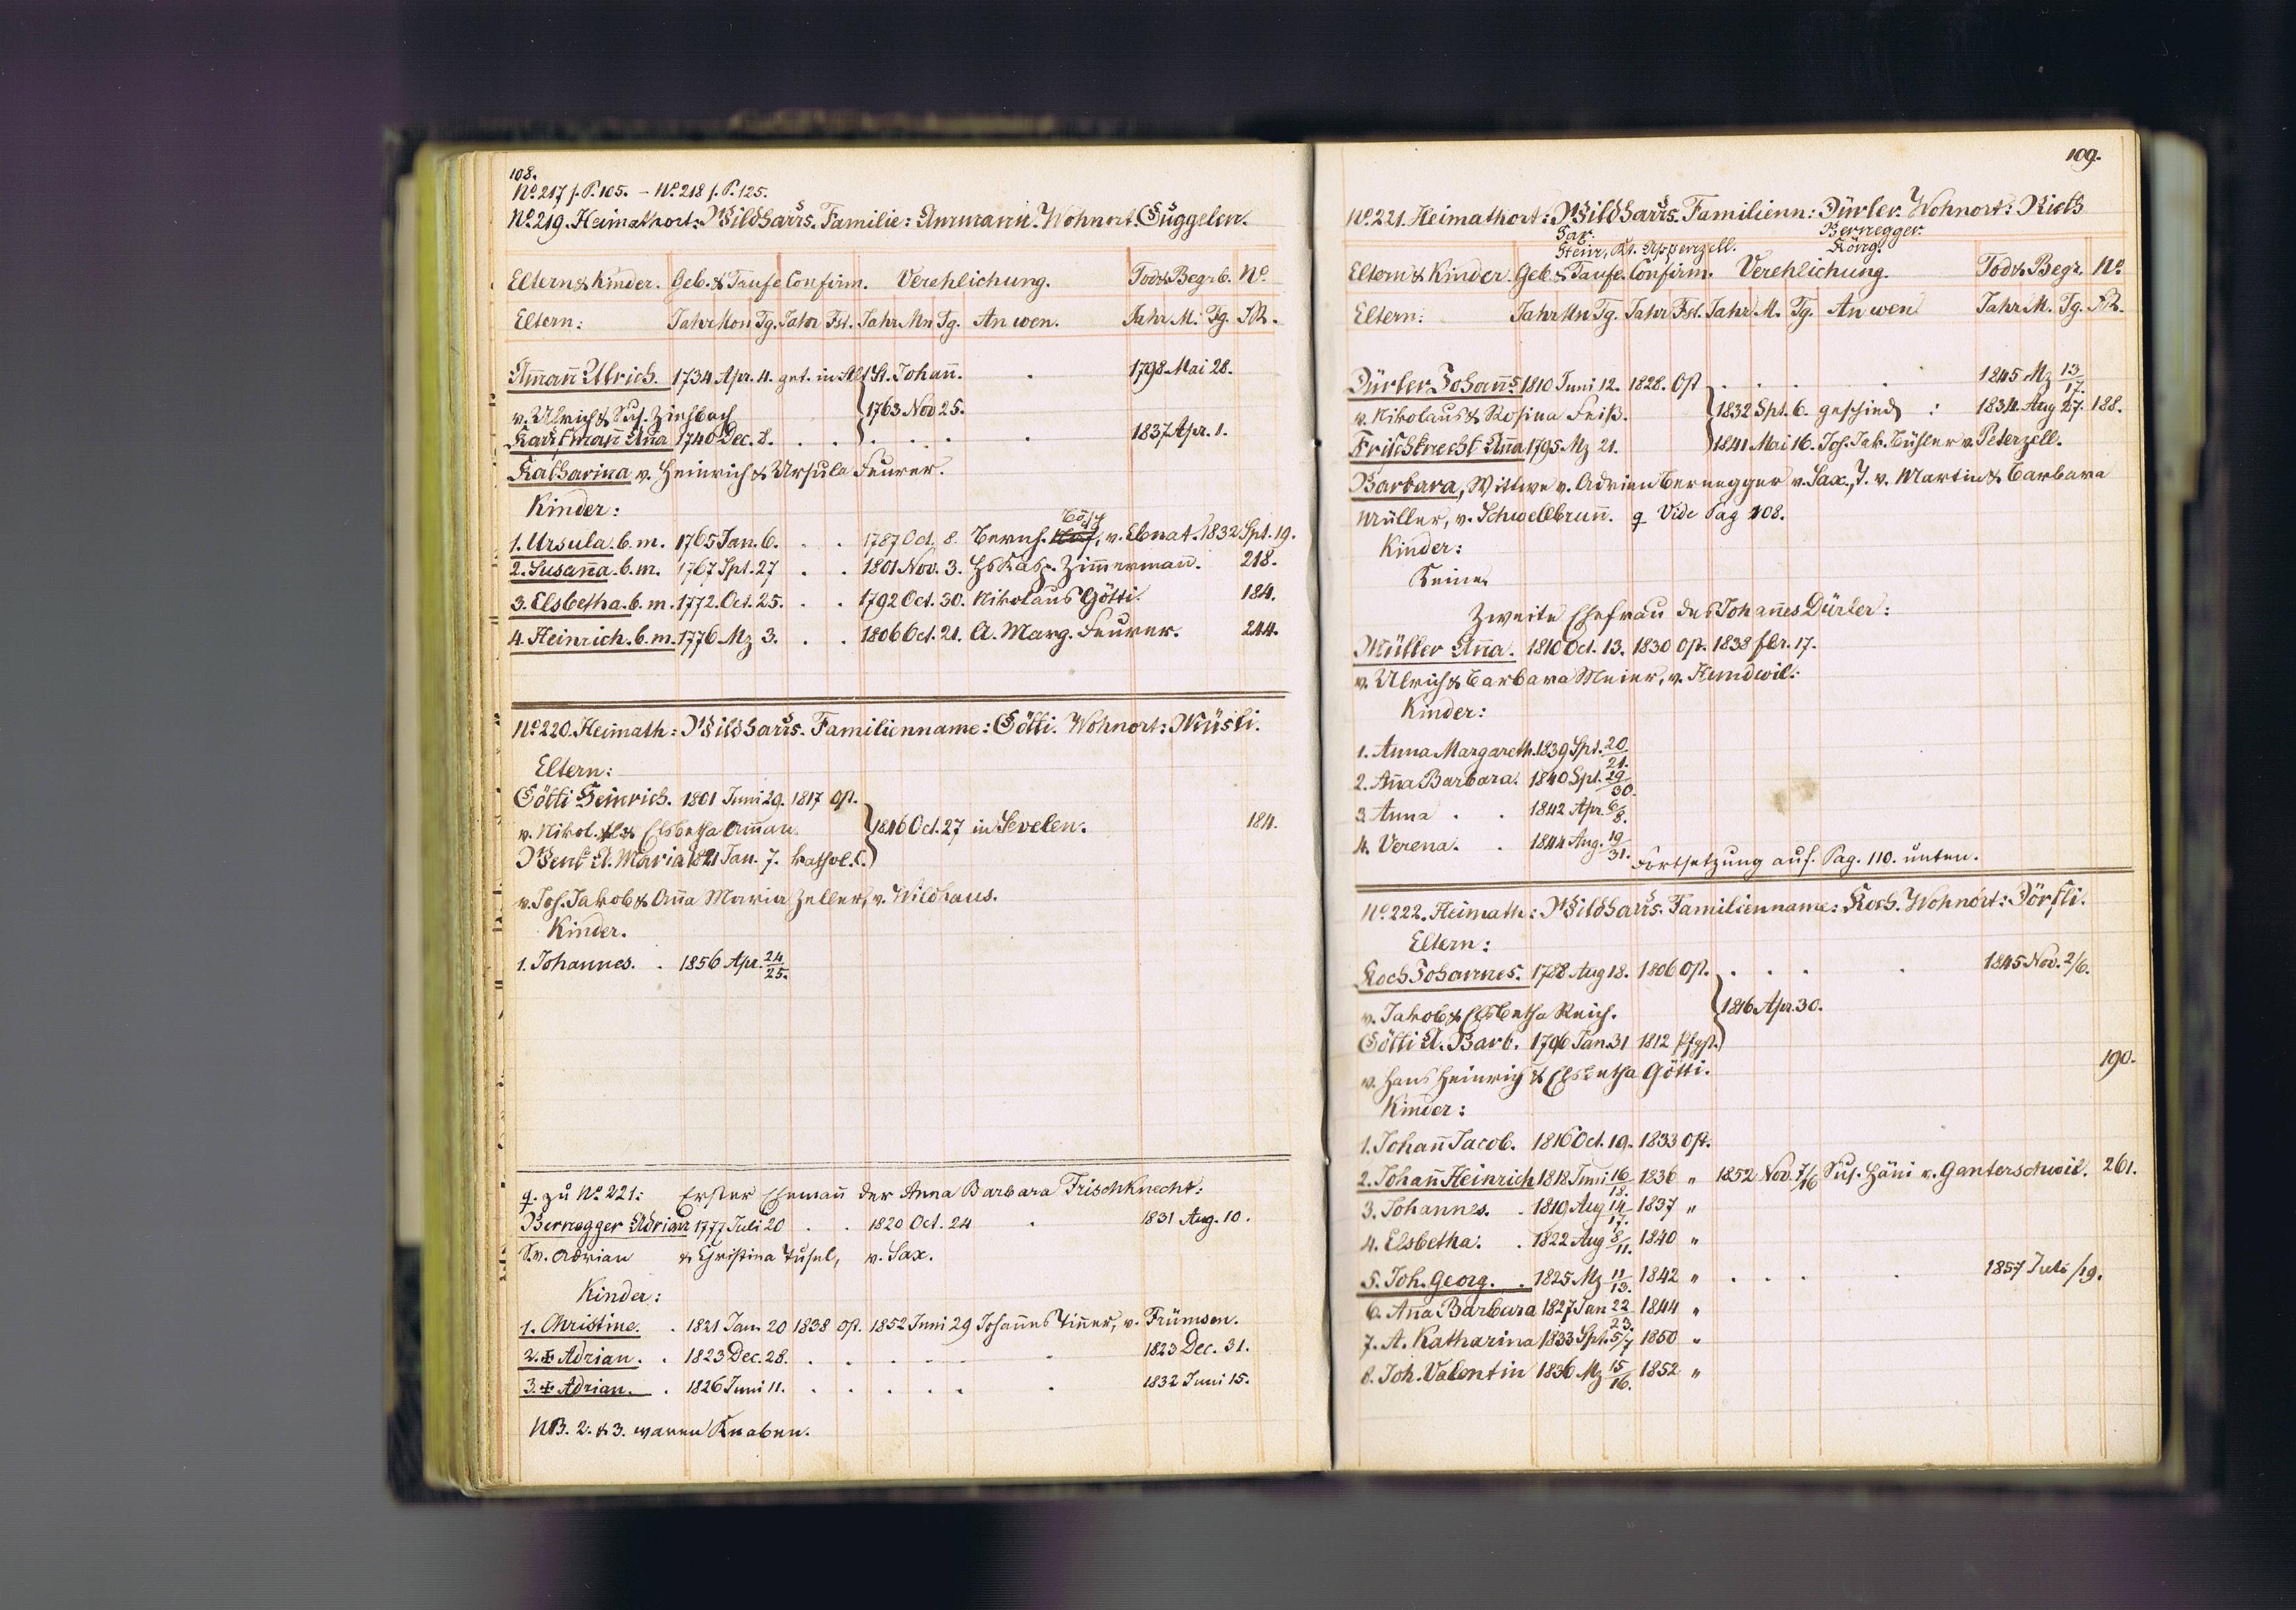 108.
No. 217 s. P. 105. – No. 218 s. P. 125.
No. 219. Heimathort: Wildhaus. Familie: Ammann. Wohnort: Guggelen.
Eltern & Kinder. Geb. & Taufe Confirm. Verehlichung. Tod & Begrb. No.
Eltern: Jahr Mon Tg. Jahr Fst. Jahr Mn Tg. An wen. Jahr M. Tg. FR.
Am̄an̄ Ulrich. 1734 Apr. 4. get. in Alt St. Johan̄. 1798 Mai 28.
v. Ulrich & Sus. 1763 Nov 25.
An̄a 1740 Dec. 8. 1837 Apr. 1.
Katharina v. Heinrich & Ursula Feurer.
Kinder:
Bösch
1. Ursula. b. m. 1765 Jan. 6. 1787 Oct. 8. Bernh. v. Ebnat. 1832 Spt. 19.
2. Susan̄a. b. m. 1767 Spt. 27 1801 Nov. 3. Hs Kasp. Zim̄erman̄. 218.
3. Elsbetha. b. m. 1772. Oct. 25. 1792 Oct. 30. Nikolaus Götti. 184.
4. Heinrich. b. m. 1776 Mz 3. 1806 Oct. 21. A. Marg. Feurer. 244.
No. 220. Heimath: Wildhaus. Familienname: Götti. Wohnort: Müsli.
Eltern:
Götti Heinrich. 1801 Juni 29. 1817 Ost.
v. Nikol. & Elsbetha Am̄an. 1846 Oct. 27 in Sevelen. 184.
Wenk A. Maria 1821 Jan. 7. kathol. C.
v. Joh. Jakob & An̄a Maria Zeller, v. Wildhaus.
Kinder.
1. Johannes. 1856 Apr. 24/25.
q. zu No. 221: Erster Eheman̄ der Anna Barbara Frischknecht:
Bernegger Adrian 1777 Juli 20 1820 Oct. 24 1831 Aug. 10.
S. v. Adrian & Christina Tusel, v. Sax.
Kinder:
1. Christine. 1821 Jan. 20 1838 Ost. 1852 Juni 29 Johan̄es Tin̄er, v. Frümsen.
2. ‡ Adrian. 1823 Dec. 28. 1823 Dec. 31.
3. ‡ Adrian. 1826 Juni 11. 1832 Juni 15.
NB. 2. & 3. waren Knaben.
109.
No. 221. Heimathort: Wildhaus. Familienn: Dürler. Wohnort: Rieth
Sax. Bernegger.
Stein, Kt. Appenzell. Köng.
Eltern & Kinder. Geb. & Taufe. Confirm. Verehlichung. Tod & Begr. No.
Eltern: Jahr Mn Tg. Jahr Fst. Jahr M. Tg. An wen Jahr M. Tg. FR.
Dürler Johan̄s 1810 Juni 12. 1828. Ost 1845 Mz 13/17.
v. Nikolaus & Rosina Feiß. 1832 Spt. 6. geschied. : 1834 Aug 27. 188.
Frischknecht An̄a 1795 Mz 21. 1841 Mai 16. Joh. Jak. Bühler v. Peterzell.
Barbara, Wittwe v. Adrian Bernegger v. Sax., T. v. Martin & Barbara
Müller, v. Schwellbrun̄. q Vide Pag 108.
Kinder:
Keine.
Zweite Ehefrau des Johan̄es Dürler:
Müller An̄a. 1810 Oct. 13. 1830 Ost. 1838 fbr. 17.
v. Ulrich & Barbara Meier, v. Hundwil.
Kinder:
1. Anna Margareth. 1839 Spt. 20/21.
2. An̄a Barbara. 1840 Spt. 29/30.
3. Anna 1842 Apr. 6/8.
4. Verena. 1844 Aug. 19/31.
Fortsetzung auf. Pag. 110. unten.
No. 222. Heimath: Wildhaus. Familienname: Koch. Wohnort: Dörfli.
Eltern:
Koch Johannes. 1788 Aug 18. 1806 Ost. 1845 Nov. 2/6.
v. Jakob & Elsbetha Reich. 1816 Apr. 30.
Götti A. Barb. 1796 Jan. 31 1812 Pfgst.
190.
v. Hans Heinrich & Elsbetha Götti.
Kinder:
1. Johan̄ Jacob. 1816 Oct. 19. 1833 Ost.
2. Johan̄ Heinrich 1818 Juni 16/18. 1836 " 1852 Nov. 7/16 Sus. Häni v. Ganterschwil. 261.
3. Johannes. 1819 Aug 14/17. 1837 "
4. Elsbetha. 1822 Aug 8/11. 1840 "
5. Joh. Georg. 1825 Mz 11/13. 1842 " 1857 Juli /19.
6. An̄a Barbara 1827 Jan 22/23. 1844 "
7. A. Katharina 1833 Spt. 5/7 1850 "
8. Joh. Valentin 1836 Mz 15/16. 1852 "